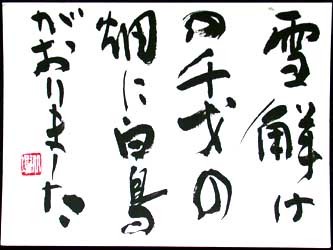 雪解け
の千代の
畑に白鳥
がおりました